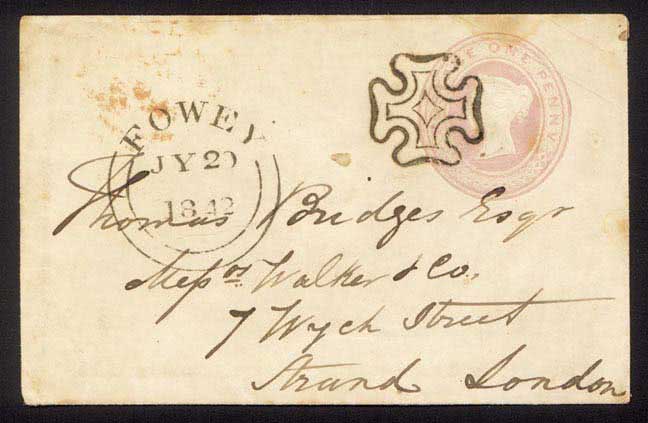 POSTAGE ONE PENNY
FOWEY
JY 20
1842
Thomas Bridges Esqr
Messrs. Walker & Co.
7 Wych Street
Strand London